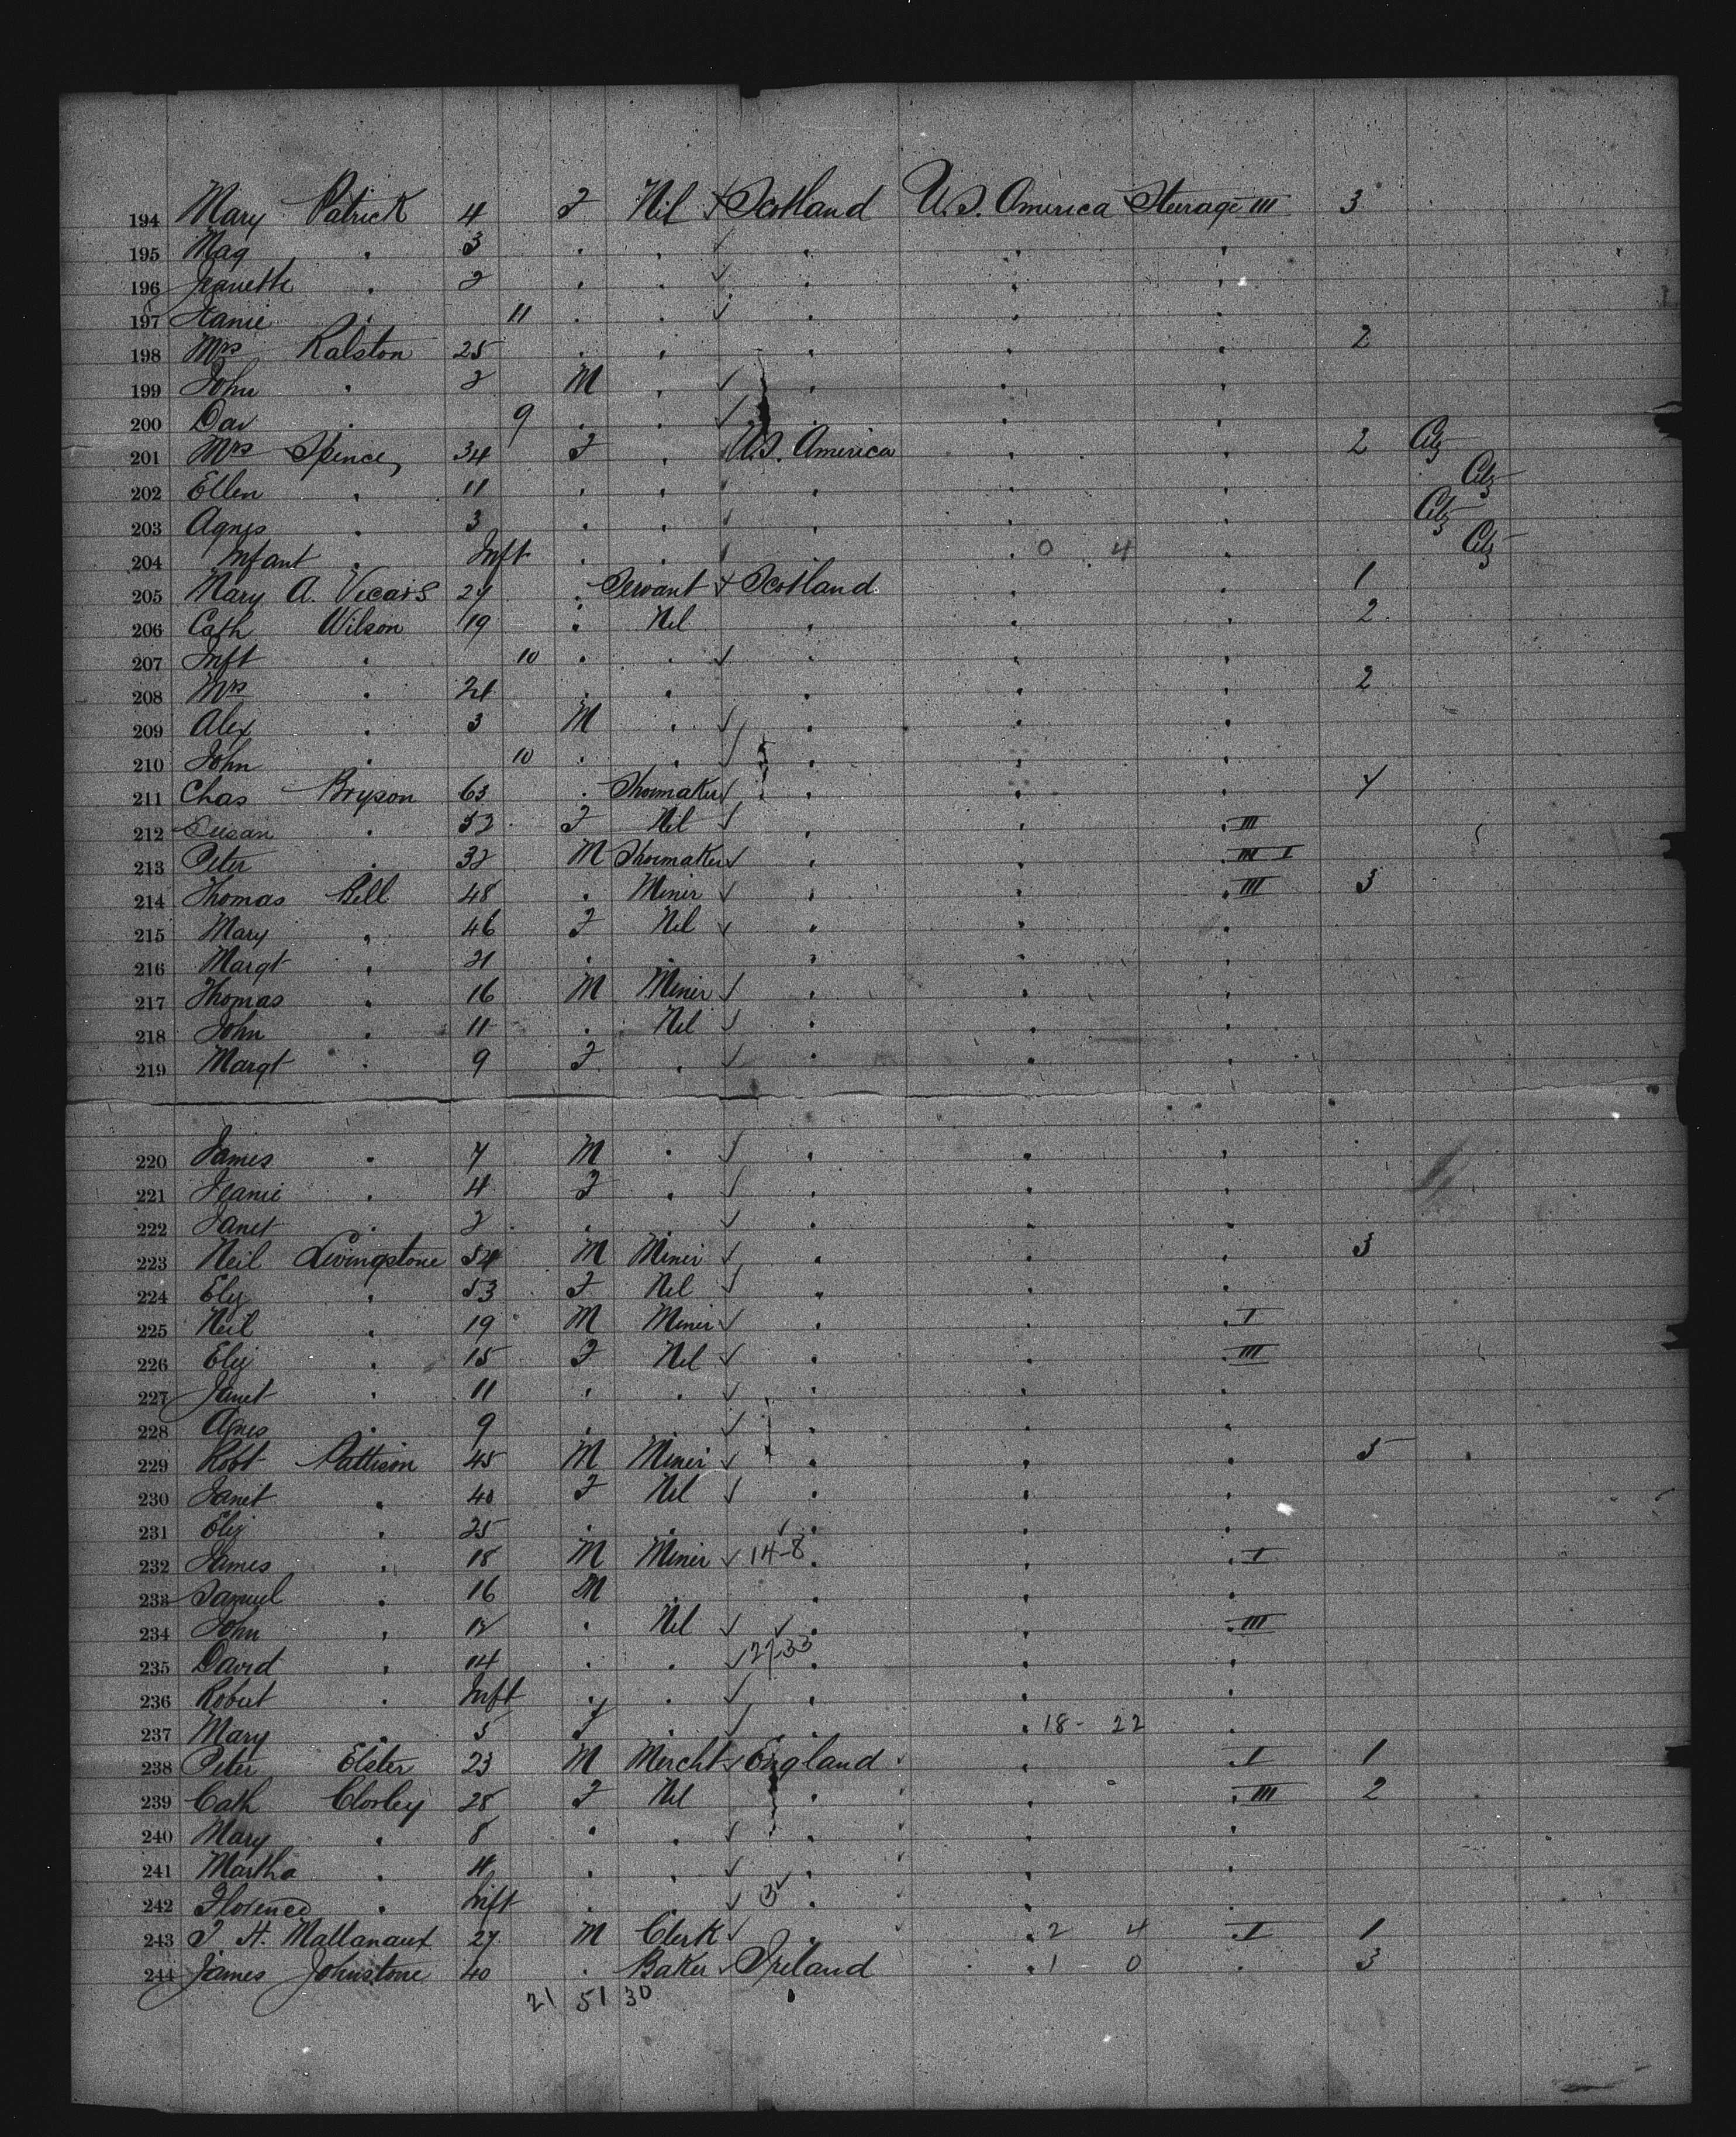 194 Mary Patrick 4 F Nil Scotland U.S. America Steerage III 3
195 Mag " 3 " " " " "
196 Jeanette " 2 " " " " "
197 Jeanie " 11 " " " " "
198 Mrs Ralston 25 " " " " " 2
199 John " 2 M " " " "
200 Dav " 9 " " " " "
201 Mrs Spence 34 F " U.S. America " " 2 Citz
202 Ellen " 11 " " " " " Citz
203 Agnes " 3 " " " " " Citz
204 Infant " Inft " " " " 0 4 " Citz
205 Mary A. Vicars 27 " Servant Scotland " " 1
206 Cath Wilson 19 " Nil " " " 2
207 Inft " 10 " " " " "
208 Mrs " 21 " " " " " 2
209 Alex " 3 M " " " "
210 John " 10 " " " " "
211 Chas Bryson 63 " Shoemaker " " " 4
212 Susan " 52 F Nil " " " III
213 Peter " 32 M Shoemaker " " " I
214 Thomas Bell 48 " Miner " " " III 3
215 Mary " 46 F Nil " " "
216 Margt " 21 " " " " "
217 Thomas " 16 M Miner " " "
218 John " 11 " Nil " " "
219 Margt " 9 F " " " "
220 James " 7 M " " " "
221 Jeanie " 4 F " " " "
222 Janet " 2 " " " " "
223 Neil Livingstone 54 M Miner " " " 3
224 Eliz " 53 F Nil " " "
225 Neil " 19 M Miner " " " I
226 Eliz " 15 F Nil " " " III
227 Janet " 11 " " " " "
228 Agnes " 9 " " " " "
229 Robt Pattison 45 M Miner " " " 5
230 Janet " 40 F Nil " " "
231 Eliz " 25 " " " " "
232 James " 18 M Miner 14-8 " " " I
233 Samuel " 16 M " " " "
234 John " 12 " Nil " " " III
235 David " 14 " " 27-33 " " "
236 Robert " Inft " " " " "
237 Mary " 5 F " " " 18 - 22 "
238 Peter Elster 23 M Mercht England " I 1
239 Cath Clorley 28 F Nil " " " III 2
240 Mary " 8 " " " " "
241 Martha " 4 " " " " "
242 Florence " Inft " " 3 " " "
243 T H. Mallanaux 27 M Clerk " " 2 4 I 1
244 James Johnstone 40 " Baker Ireland " 1 0 " 3
21 51 30